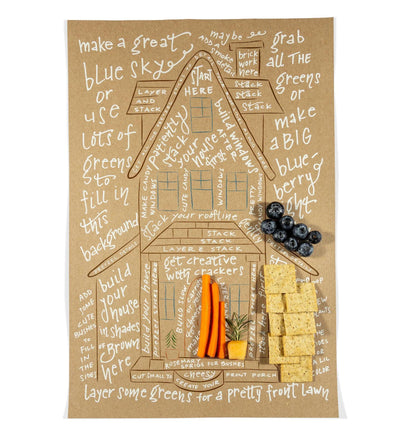 make a great
blue skye
or
use
lots of
greens
to
fill in
this
background
maybe
add a
smoke
detail
brick
work
here
grab
all the
greens
or
make
a BIG
blue-
berry
START
HERE
LAYER
AND STACK
STACK
STACK
STACK
patiently
stack
your
house
first
build windows
AFTER
MAKE CANDY
WINDOWS
CUTE CANDY
WINDOWS
Stack your roofline
STACK
STACK
LAYER & STACK
get creative
with crackers
ADD
SOME
CUTE
BUSHES
TO
FILL
IN
THE
SIDE
build
your
house
in shades
of
Brown
here
build your house
ROSEMARY
SPRIGS FOR BUSHES
CUT SMALL TO
cheesy
CREATE YOUR
FRONT PORCH
layer some greens for a pretty front lawn